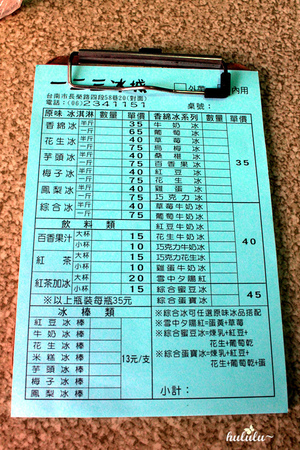 外帶 內用
台南市長榮路四段58巷20(對面)
電話:(06)2341151 桌號:
原味 冰淇淋 數量 單價 香綿冰系列 數量 單價
香綿冰 半斤 35 牛奶冰
一斤 65 葡萄冰
花生冰 半斤 40 草莓冰
一斤 75 烏梅冰
芋頭冰 半斤 40 桑椹冰
一斤 75 百香果冰 35
梅子冰 半斤 40 紅豆冰
一斤 75 花生冰
鳳梨冰 半斤 40 雞蛋冰
一斤 75 巧克力冰
綜合冰 半斤 40 草莓牛奶冰
一斤 75 葡萄牛奶冰
飲料類 紅豆牛奶冰
百香果汁 大杯 15 花生牛奶冰 40
小杯 10 巧克力牛奶冰
紅茶 大杯 15 巧克力花生冰
小杯 10 雞蛋牛奶冰
紅茶加冰 大杯 20 雪中夕陽紅
小杯 15 綜合蜜豆冰
※以上瓶裝每瓶35元 綜合蛋寶冰 45
冰棒類
紅豆冰棒
牛奶冰棒
花生冰棒
米糕冰棒 13元/支
芋頭冰棒
梅子冰棒
鳳梨冰棒
※綜合冰可任選原味冰品搭配
※雪中夕陽紅=蛋黃+草莓
※綜合蜜豆冰=煉乳+紅豆+
花生+葡萄乾
※綜合蛋寶冰=煉乳+紅豆+
花生+葡萄乾+蛋
小計:
hululu~